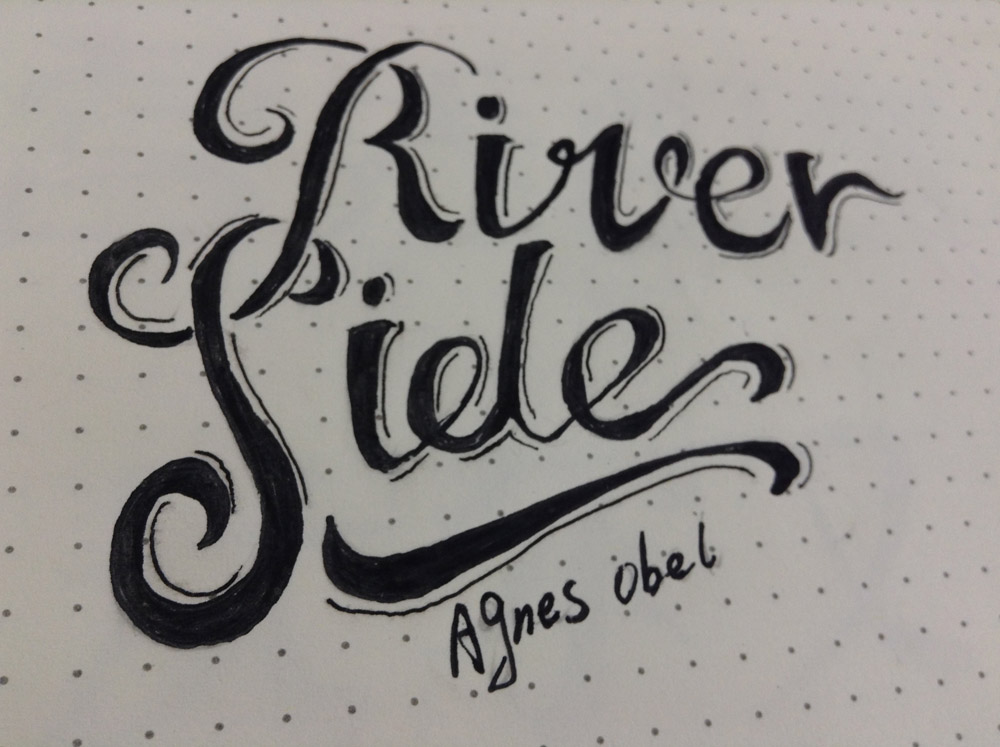 River
Side
Agnes Obel